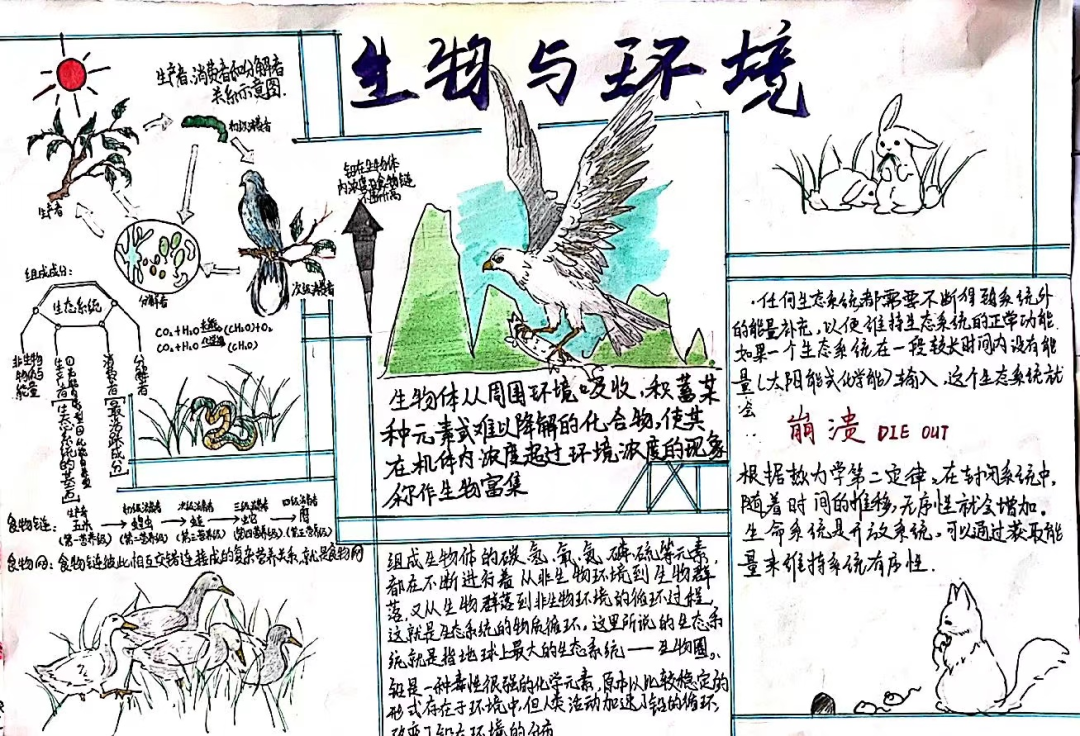 生物与环境
生产者、消费者和分解者
关系示意图.
初级消费者
生产者
分解者
次级消费者
铅在生物体
内浓度沿食物链
不断升高
组成成分:
生态系统
非生物物质与能量
消费者(最活跃成分)
分解者
CO₂+H₂O (CH₂O)+O₂
CO₂+H₂O (CH₂O)
食物链:
生产者 初级消费者 次级消费者 三级消费者 四级消费者
玉米→蝗虫→蛙→蛇→鹰
(第一营养级) (第二营养级) (第三营养级) (第四营养级) (第五营养级)
食物网: 食物链彼此相互交错连接成的复杂营养关系,就是食物网
生物体从周围环境吸收,积蓄某
种元素或难以降解的化合物,使其
在机体内浓度超过环境浓度的现象
称作生物富集
组成生物体的碳、氢、氧、氮、磷、硫等元素,
都在不断进行着从非生物环境到生物群
落,又从生物群落到非生物环境的循环过程,
这就是生态系统的物质循环。这里所说的生态系
统就是指地球上最大的生态系统——生物圈。
铅是一种毒性很强的化学元素,原本以比较稳定的
形式存在于环境中,但人类活动加速了铅的循环,
改变了铅在环境的分布
·任何生态系统都需要不断得到系统外
的能量补充,以便维持生态系统的正常功能.
如果一个生态系统在一段较长时间内没有能
量(太阳能或化学能)输入,这个生态系统就
会
崩溃 DIE OUT
根据热力学第二定律。在封闭系统中,
随着时间的推移,无序性就会增加。
生命系统是开放系统。可以通过获取能
量来维持系统有序性.